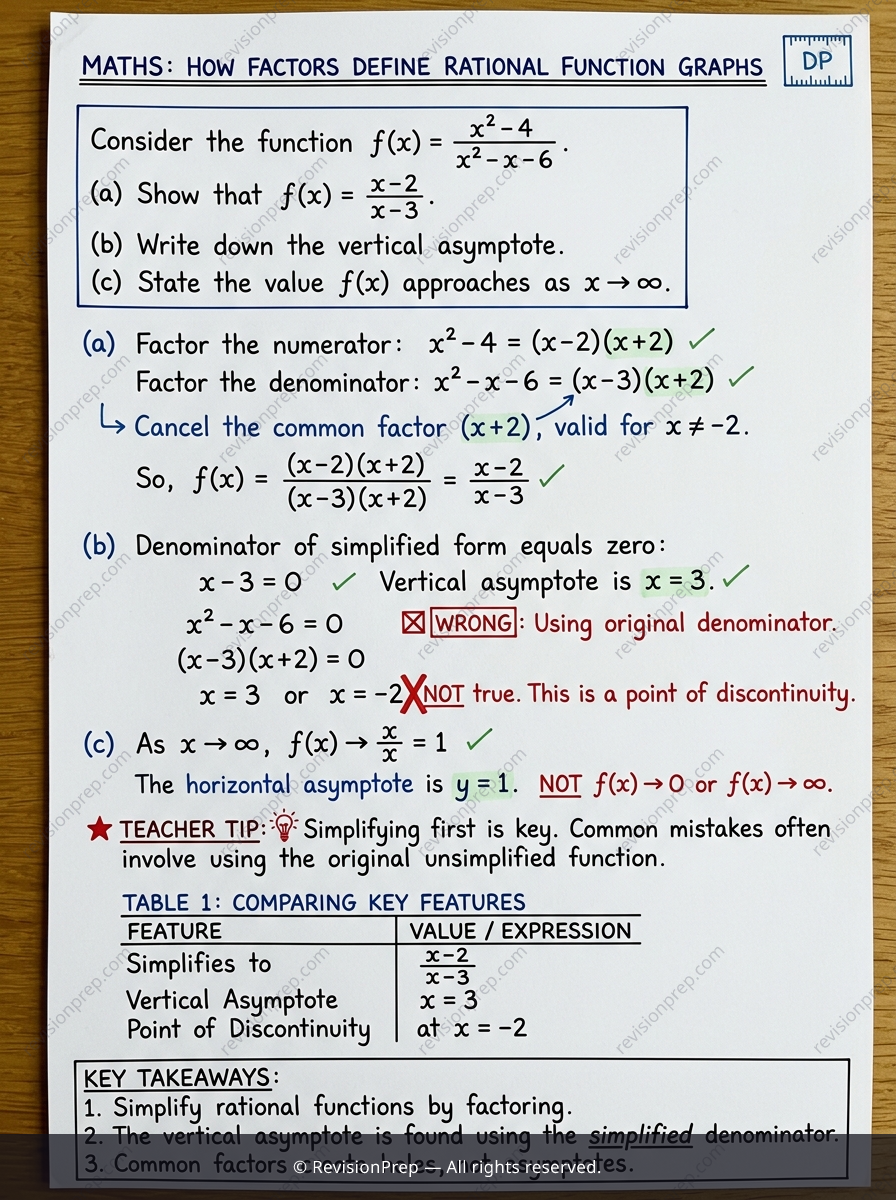 MATHS: HOW FACTORS DEFINE RATIONAL FUNCTION GRAPHS
DP
Consider the function f(x) = (x² − 4)/(x² − x − 6).
(a) Show that f(x) = (x−2)/(x−3).
(b) Write down the vertical asymptote.
(c) State the value f(x) approaches as x → ∞.
(a) Factor the numerator: x² − 4 = (x−2)(x+2) ✓
Factor the denominator: x² − x − 6 = (x−3)(x+2) ✓
↳ Cancel the common factor (x+2), valid for x ≠ −2.
So, f(x) = (x−2)(x+2)/(x−3)(x+2) = (x−2)/(x−3) ✓
(b) Denominator of simplified form equals zero:
x − 3 = 0 ✓ Vertical asymptote is x = 3. ✓
x² − x − 6 = 0 ☒ WRONG: Using original denominator.
(x−3)(x+2) = 0
x = 3 or x = −2 ✗ NOT true. This is a point of discontinuity.
(c) As x → ∞, f(x) → x/x = 1 ✓
The horizontal asymptote is y = 1. NOT f(x) → 0 or f(x) → ∞.
★ TEACHER TIP: Simplifying first is key. Common mistakes often
involve using the original unsimplified function.
TABLE 1: COMPARING KEY FEATURES
FEATURE VALUE / EXPRESSION
Simplifies to (x−2)/(x−3)
Vertical Asymptote x = 3
Point of Discontinuity at x = −2
KEY TAKEAWAYS:
1. Simplify rational functions by factoring.
2. The vertical asymptote is found using the simplified denominator.
3. Common factors
© RevisionPrep — All rights reserved.
revisionprep.com